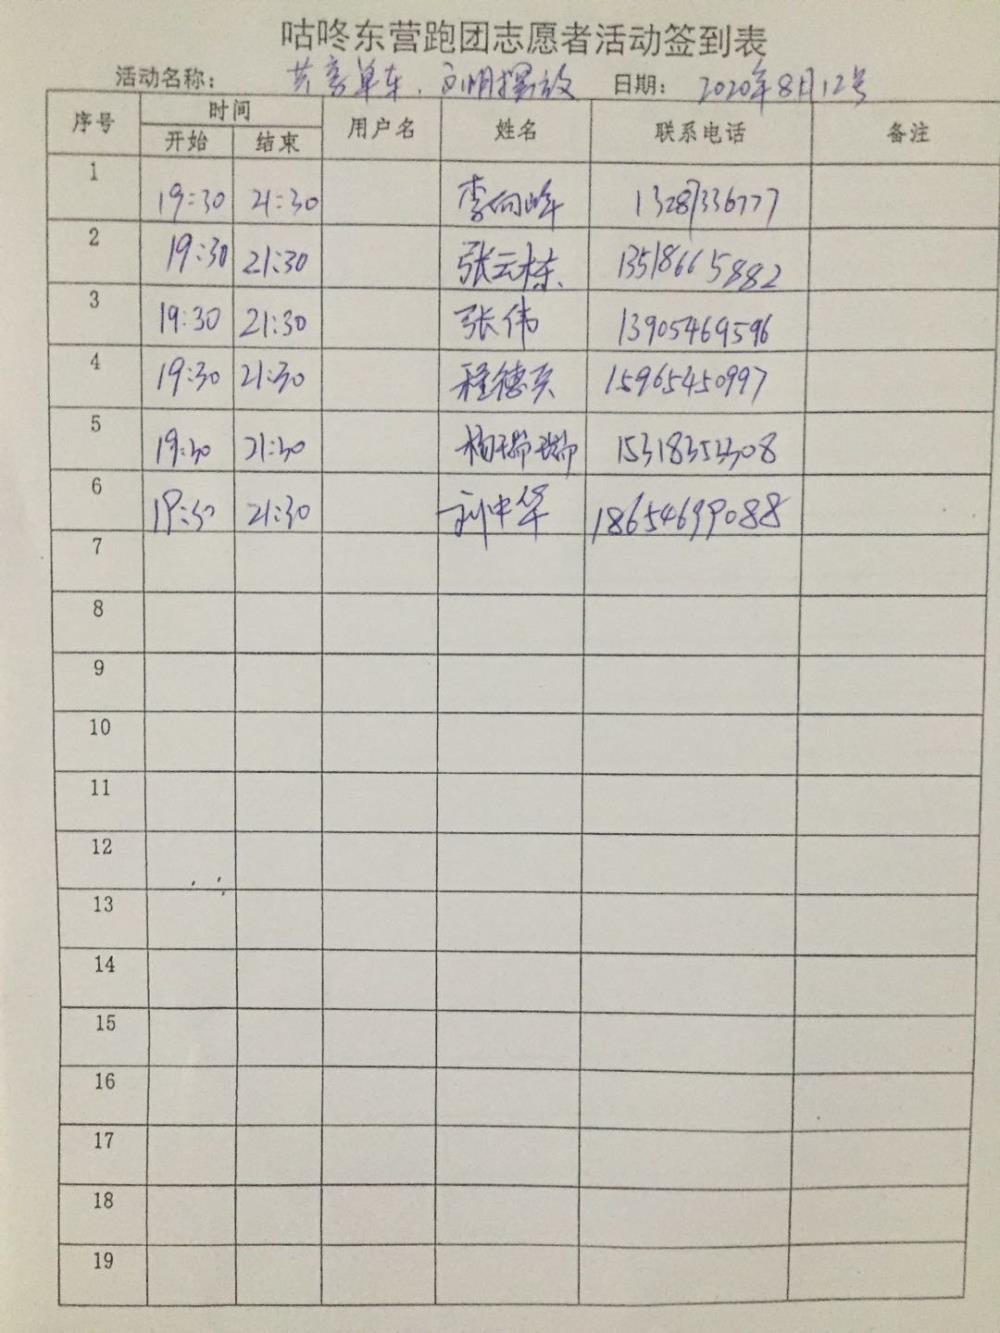 咕咚东营跑团志愿者活动签到表
活动名称： 共享单车、文明摆放 日期： 2020年8月12号
序号 时间 用户名 姓名 联系电话 备注
开始 结束
1 19:30 21:30 李向峰 13287336777
2 19:30 21:30 张云栋 13518665882
3 19:30 21:30 张伟 13905469596
4 19:30 21:30 程德 15965450997
5 19:30 21:30 杨瑞瑞
6 19:30 21:30 刘中华 18654699088
7
8
9
10
11
12
13
14
15
16
17
18
19